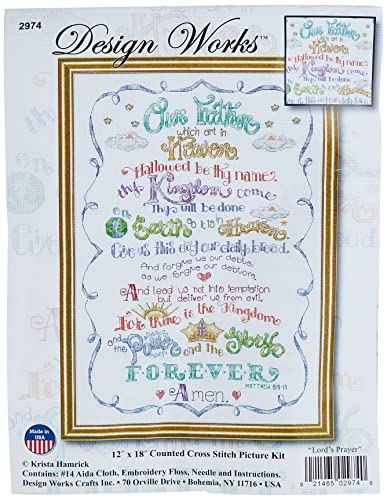 2974
Design Works™
Our Father
which art in
Heaven
Hallowed be thy name
Our Father
which art in
Heaven,
Hallowed be thy name.
thy Kingdom come
Thy will be done
on Earth as it is in Heaven.
Give us this day our daily bread.
And forgive us our debts,
as we forgive our debtors.
And lead us not into temptation
but deliver us from evil.
For thine is the Kingdom
and the Power and the glory
FOREVER
MATTHEW 6:9-13
Amen.
Made in
USA
12" x 18" Counted Cross Stitch Picture Kit
© Krista Hamrick
Contains: #14 Aida Cloth, Embroidery Floss, Needle and Instructions.
Design Works Crafts Inc. • 70 Orville Drive • Bohemia, NY 11716 • USA
"Lord's Prayer"
0 21465 02974 9